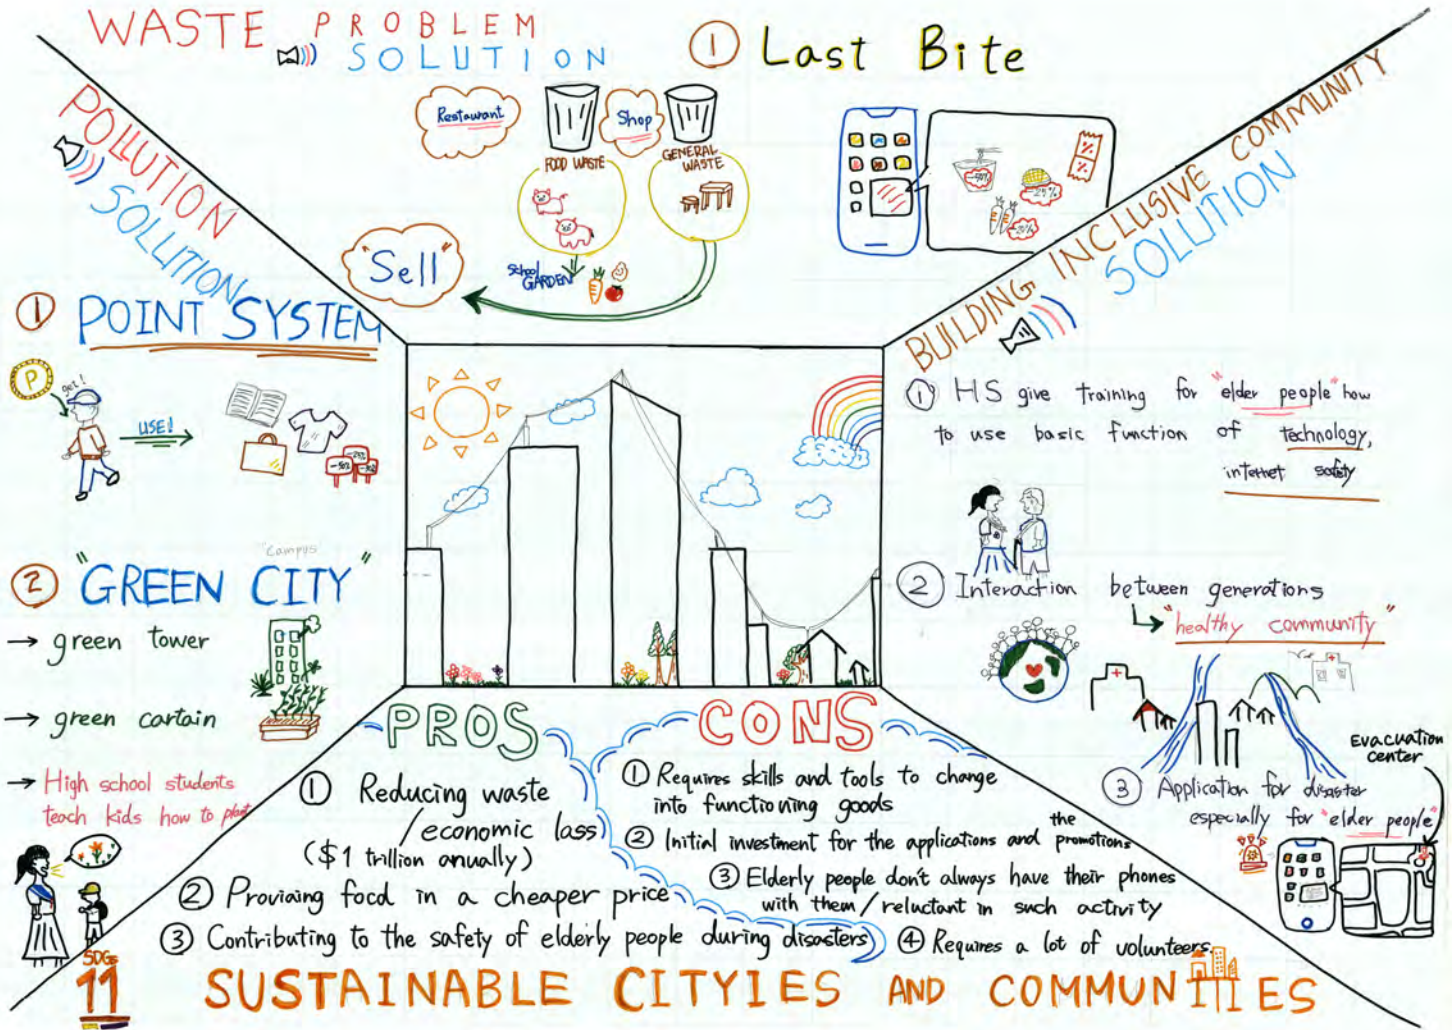 WASTE PROBLEM
SOLUTION
① Last Bite
Restaurant
Shop
FOOD WASTE
GENERAL
WASTE
-50%
-25%
%
%
"Sell"
School
GARDEN
POLLUTION
SOLUTION
① POINT SYSTEM
P
get!
USE!
"Campus"
② "GREEN CITY"
→ green tower
→ green cartain
→ High school students
teach kids how to plant
BUILDING INCLUSIVE COMMUNITY
SOLUTION
① HS give training for "elder people" how
to use basic function of technology,
internet safety
② Interaction between generations
"healthy community"
Evacuation
center
③ Application for disaster
especially for "elder people"
PROS
① Reducing waste
/economic lass
($1 trillion anually)
② Proviaing food in a cheaper price
③ Contributing to the safety of elderly people during disasters
CONS
① Requires skills and tools to change
into functioning goods
② Initial investment for the applications and the promotions
③ Elderly people don't always have their phones
with them / reluctant in such activity
④ Requires a lot of volunteers.
SDGs
11
SUSTAINABLE CITYIES AND COMMUNITIES